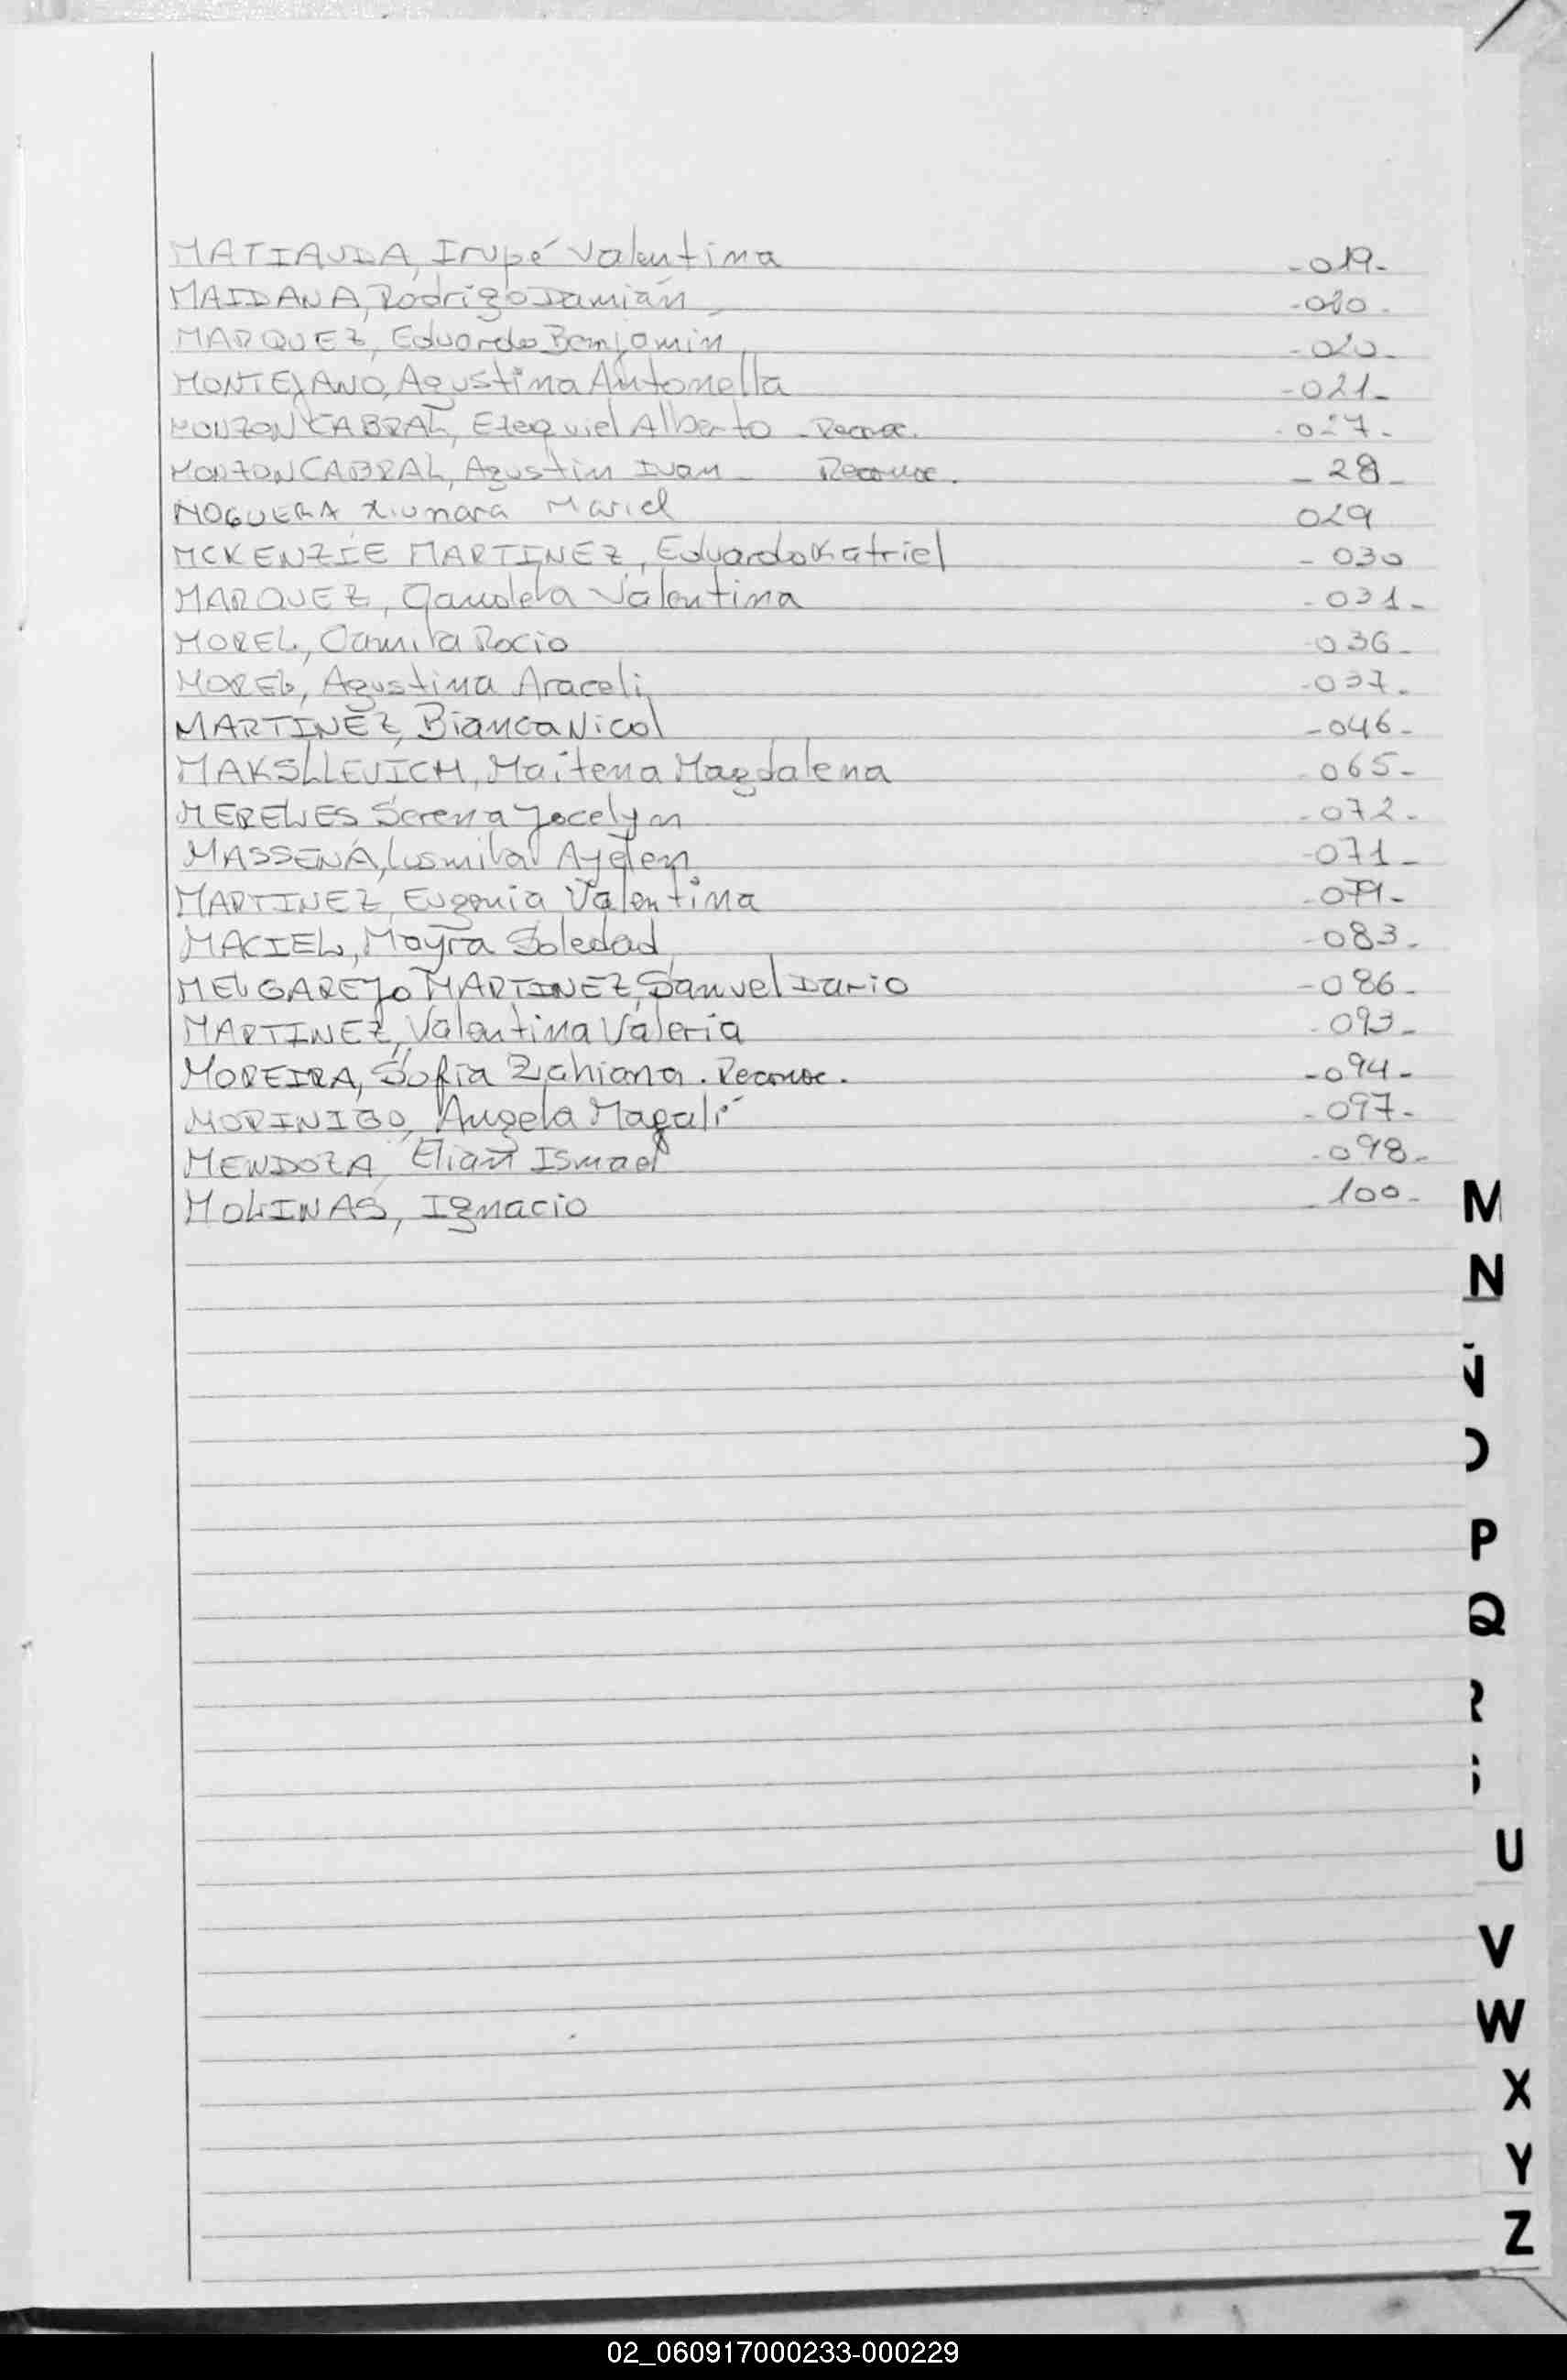 MATIAUDA, Irupé Valentina -019-
MAIDANA, Rodrigo Damián -020-
MARQUEZ, Eduardo Benjamin -020-
MONTEJANO, Agustina Antonella -021-
MONZON CABRAL, Ezequiel Alberto - Reconoc. -027-
MONZON CABRAL, Agustin Ivan - Reconoc. - 28 -
NOGUERA Xiomara Mariel 029
MCKENZIE MARTINEZ, Eduardo Katriel - 030
MARQUEZ, Candela Valentina -031-
MOREL, Camila Rocio -036-
MOREL, Agustina Araceli -037-
MARTINEZ, Bianca Nicol -046-
MAKSLLEVICH, Maitena Magdalena -065-
MERELES Serena Jocelyn -072-
MASSENA, Lusmila Ayelen -071-
MARTINEZ, Eugenia Valentina -079-
MACIEL, Mayra Soledad -083-
MELGAREJO MARTINEZ, Samuel Dario -086-
MARTINEZ, Valentina Valeria -093-
MOREIRA, Sofia Zahiana. Reconoc. -094-
MORINIGO, Angela Magalí -097-
MENDOZA, Elian Ismael -098-
MOLINAS, Ignacio -100-
M
N
Ñ
O
P
Q
R
S
U
V
W
X
Y
Z
02_060917000233-000229